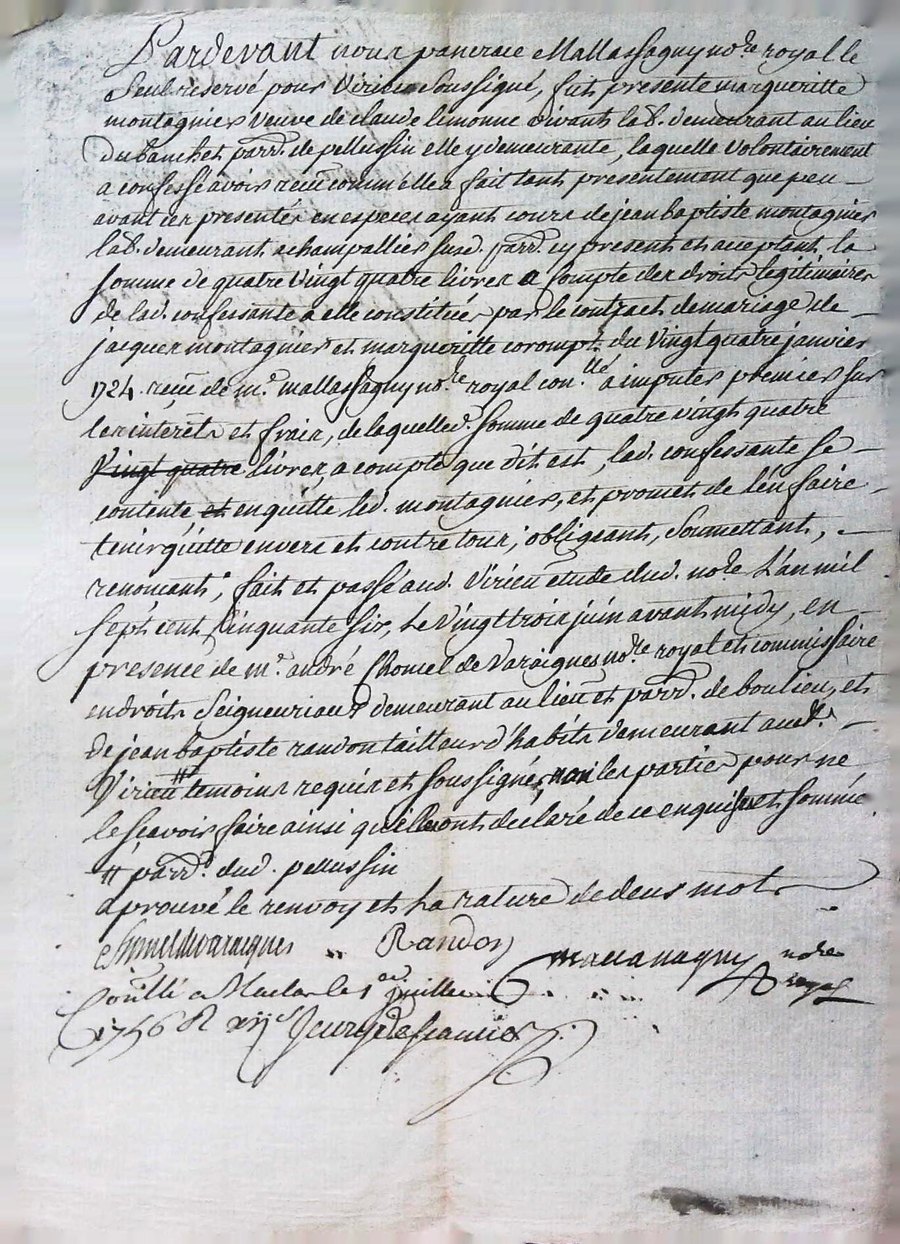 Pardevant nous pancrace Mallassagny no.re royal le
Seul reservé pour Virieu Soussigné, fut presente margueritte
montagnier veuve de claude limonne vivant lab.r demeurant au lieu
du banchet parr.e de pellussin elle y demeurante, laquelle volontairement
a confessé avoir receu comm'elle a fait tant presentement que peu
avant ces presentes en especes ayant cours de jean baptiste montagnier
lab.r demeurant a champallier susd. parr.e cy present et acceptant, la
somme de quatre vingt quatre livres a compte des droits legitimaires
de lad. confessante a elle constitués par le contract de mariage de
jacques montagnier et margueritte corompt, du vingt quatre janvier
1724. receu de m.e mallassagny no.re royal con.llé a imputer premier sur
les interets et frais, de laquelled. somme de quatre vingt quatre
vingt quatre livres, a compte que dit est, lad. confessante se
contente et en quitte led. montagnier, et promet de l'en faire
tenir quitte envers et contre tous, obligeant, soumettant,
renonçant, fait et passé aud. Virieu etude dud. no.re L'an mil
sept cent cinquante six, le vingt trois juin avant midy, en
presence de m.e andré Chomel de Varaignes no.re royal et commissaire
en droits Seigneuriaux demeurant au lieu et parr.e de boulieu, et
de jean baptiste randon tailleur d'habits demeurant aud.
Virieu # temoins requis et soussignés, non les parties pour ne
le sçavoir faire ainsi qu'elles ont declaré de ce enquises et sommées
# parr.e dud. pellussin
aprouvé le renvoy et la rature de deux mots
Chomel de varaignes Randon Mallassagny no.re royal
Con.llé a Maclas le 1.er Juillet
1756 R xij s